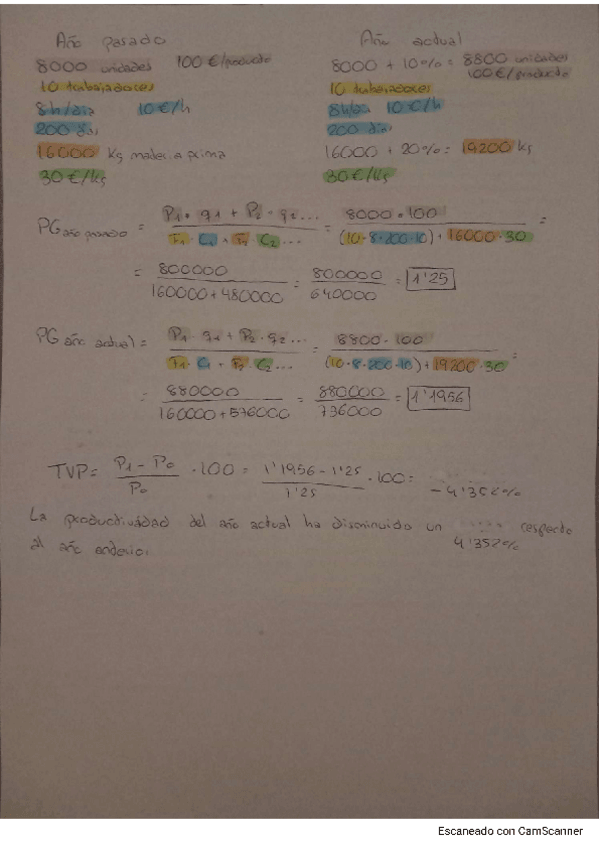 Año pasado
8000 unidades 100 €/producto
10 trabajadores
8h/día 10 €/h
200 días
16000 Kg materia prima
30 €/kg
Año actual
8000 + 10% = 8800 unidades
100 €/producto
10 trabajadores
8h/día 10 €/h
200 días
16000 + 20% = 19200 kg
30 €/kg
PG año pasado = P1 · q1 + P2 · q2 ... / F1 · C1 + F2 · C2 ... = 8000 · 100 / (10 · 8 · 200 · 10) + 16000 · 30 =
= 800000 / 160000 + 480000 = 800000 / 640000 = 1'25
PG año actual = P1 · q1 + P2 · q2 ... / F1 · C1 + F2 · C2 ... = 8800 · 100 / (10 · 8 · 200 · 10) + 19200 · 30 =
= 880000 / 160000 + 576000 = 880000 / 736000 = 1'1956
TVP = P1 - P0 / P0 · 100 = 1'1956 - 1'25 / 1'25 · 100 = -4'352%
La productividad del año actual ha disminuido un 4'352% respecto
al año anterior.
Escaneado con CamScanner